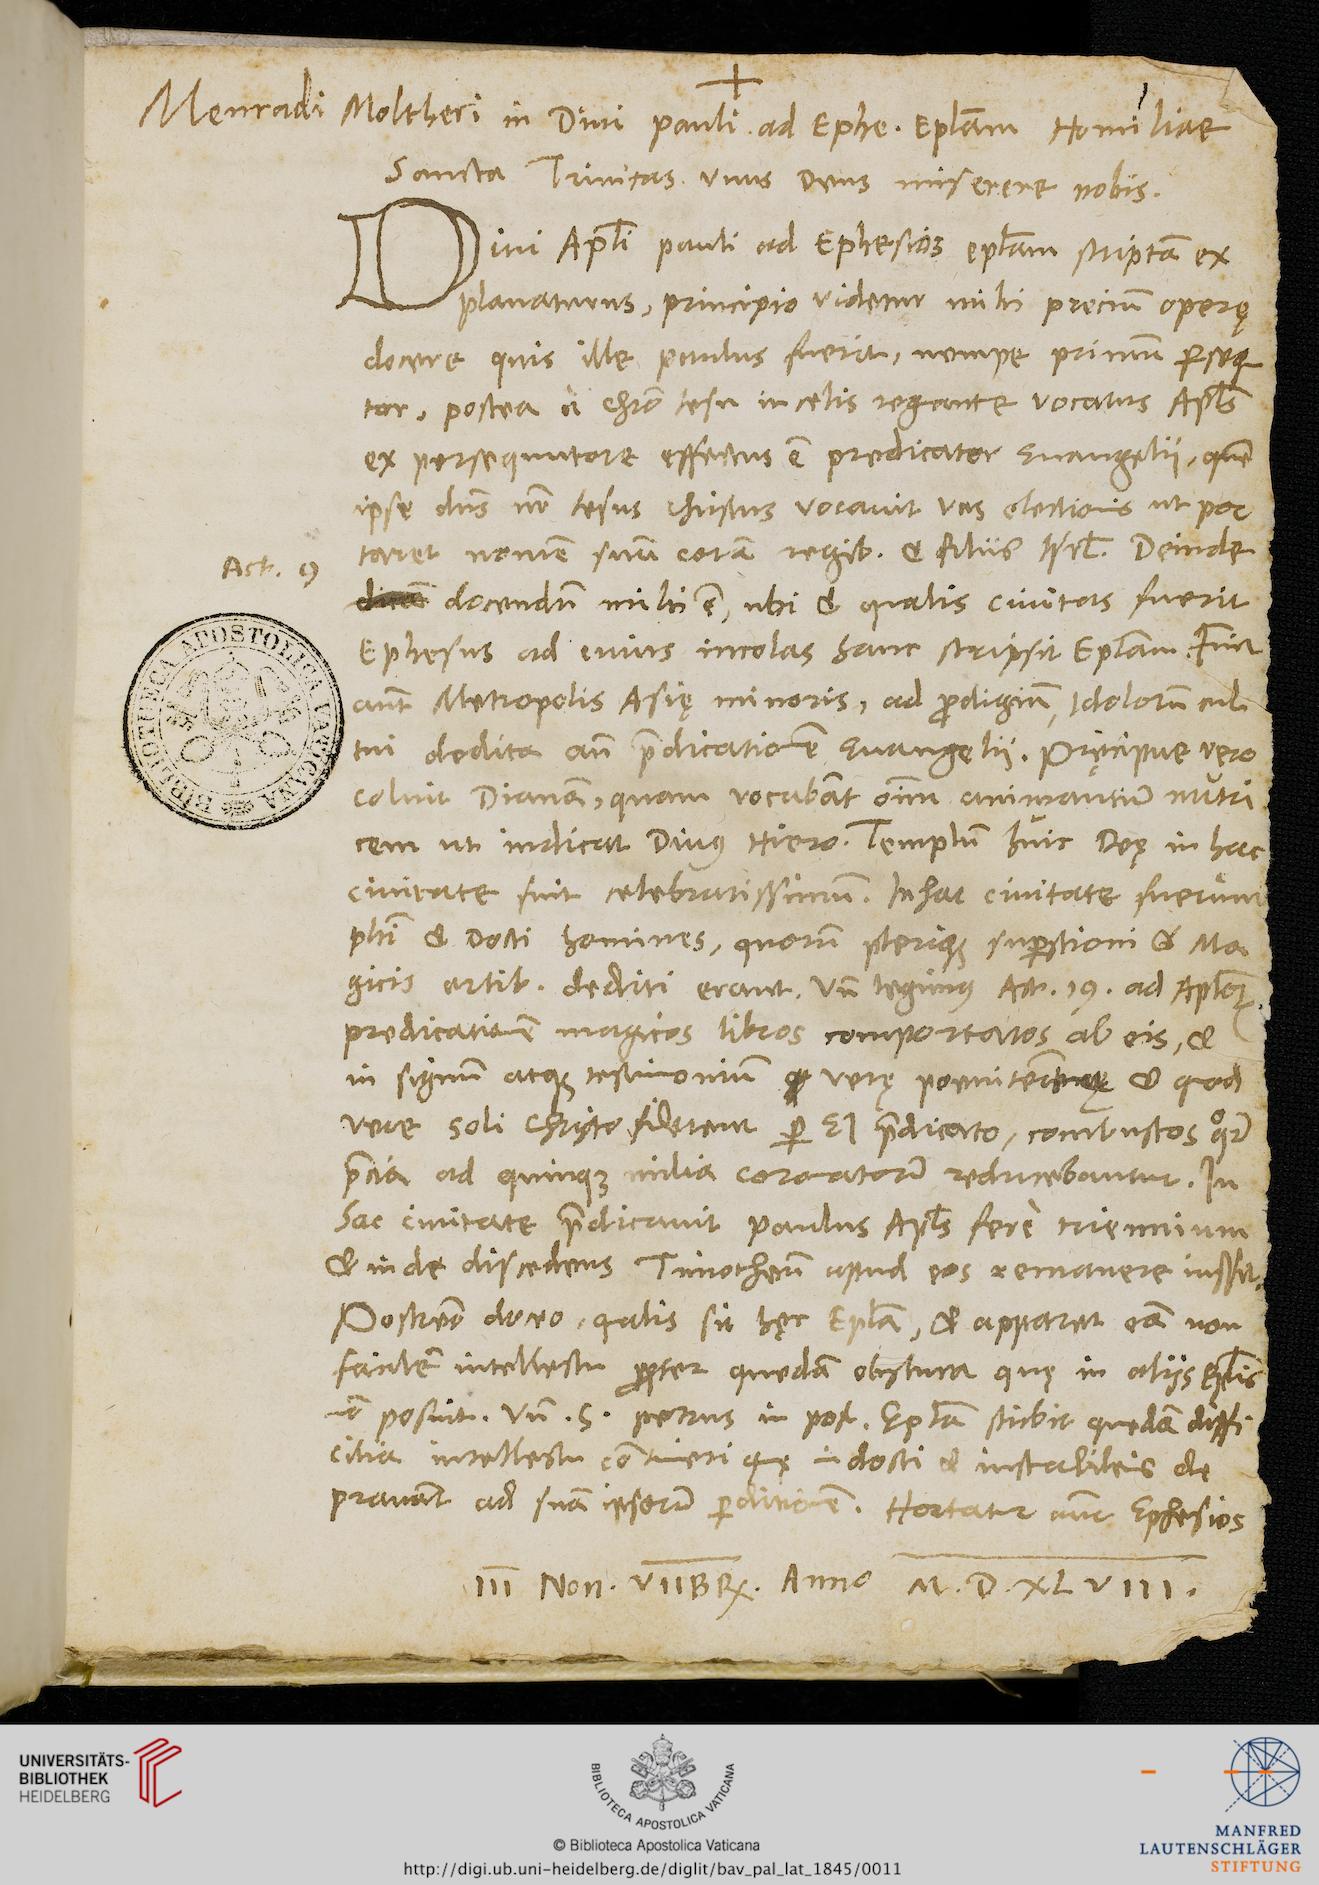 +
Menradi Moltheri in Divi pauli ad Ephe. Eplam Homiliae
Sancta Trinitas unus Deus miserere nobis.
Divi Apli pauli ad Ephesios eplam scriptā ex
planaturus, principio videtur mihi preciū operę
docere quis ille paulus fuerit, nempe primū
tor, postea a chro Iesu in celis regnante vocatus Apls
ex persequutore effectus ē predicator Euangelii, quē
ipse dns nr Iesus Christus vocauit vas electionis ut por
taret nomē suū corā regib. & filiis Isrl. Deinde
Act. 9
docendū mihi ē, ubi & qualis ciuitas fuerit
Ephesus ad cuius incolas hanc scripsit Eplam. Fuit
aut Metropolis Asię minoris, ad prodigium, Idolorū cul
tui dedita an prdicationē Euangelii. Pręcipue vero
coluit Dianā, quam vocabāt oim animantiū nutri
cem ut indicat Divus Hiero. Templū huic Deę in hac
ciuitate fuit celebratissimū. In hac ciuitate fuerunt
phi & Docti homines, quorū pleriq; suprstioni & Ma
gicis artib. dediti erant. Vn legimus Act. 19. ad Aplor
predicationē magicos libros comportatos ab eis, &
in signū atq; testimoniū verę & quod
vere soli Christo fiderent prdicato, combustos
prcia ad quinq; milia coronatorū reducebantur. In
hac ciuitate prdicauit Paulus Apls fere triennium
& inde discedens Timotheū apud eos remanere iussit.
Postremo doceo, qualis sit hęc Epla, & apparet eā non
facilē intellectu propter quedā obscura quę in alijs Eplis
nō posuit. Vn .S. petrus in post. Epla scribit quedā diffi
cilia intellectu cōtineri quę indocti & instabiles de
prauāt ad suā ipsorū perditionē. Hortatur aut Ephesios
III Non. VIIBR. Anno M.D.XLVIII.
BIBLIOTHECA APOSTOLICA VATICANA
UNIVERSITÄTS-
BIBLIOTHEK
HEIDELBERG
BIBLIOTECA APOSTOLICA VATICANA
© Biblioteca Apostolica Vaticana
http://digi.ub.uni-heidelberg.de/diglit/bav_pal_lat_1845/0011
MANFRED
LAUTENSCHLÄGER
STIFTUNG